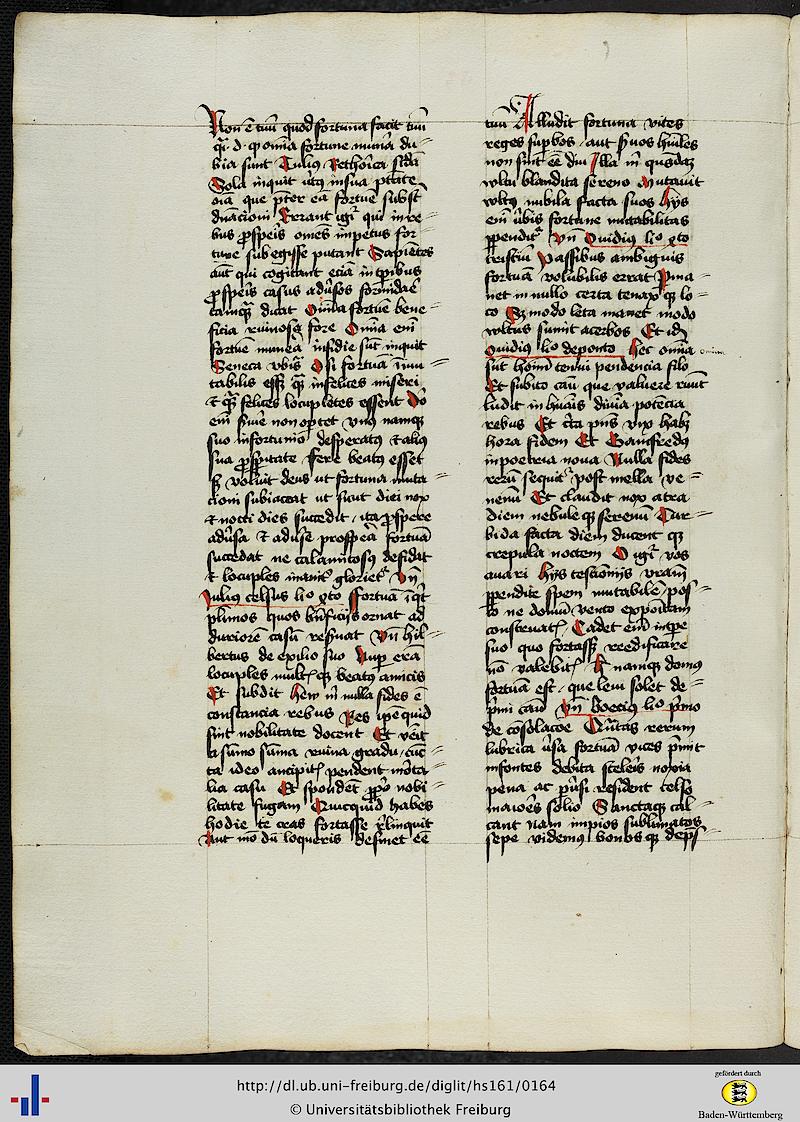 Non ē tuū quod fortuna facit tuū
q̄. d. q̄ omīa fortune munīa du=
bia sunt Tulius Rethoīca
Sola inquit in sua ptāte
oīa que pter eā fortūe subst
dnācioni Errant igr̄ qui in re=
bus prospeīs omēs impetus for=
tune subegisse putant Sapiētes
aūt qui cogitant eciā in
prospeīs casus adūsos formidāe
tamq̄ dicat Omīa fortūe bene=
ficia ruinosa fore Omīa em̄
fortūe munea insidie sūt inquit
Seneca O si fortūa immu=
tabilis essꝫ q̄ infelices miseri
et q̄ felices locupletes essent
em̄ non optet unus namqꝫ
suo infortunio desperatꝰ et aliꝰ
sua prospitate fere beatꝰ esset
sꝫ voluit deus ut fortuna muta=
cioni subiaceat ut sicut diei nox
et nocti dies succedit, ita prospere
adūsa et adūse prosperā fortuā
succedat ne calamitosꝰ desidat
et locuples glorietꝰ Un̄
Iulius celsus lio Fortuā
plimos quos bn̄ficijs ornat ad
duriorē casū resuat Un̄ hil=
bertus de exilio suo Nup erā
locuples multꝭ qꝫ beatꝰ amicis
Et subdit Hew in nulla fides ē
constancia rebus Res ipē quid
sint nobilitate docent Et
a sūmo sūma ruina gradu, cūc=
ta ideo ancipitꝭ pendent
lia casu Et spondēt nobi=
litate fugam Quicquid habes
hodie te cras fortasse relinquit
Aut mo dū loqueris desinet eē
tuū Alludit fortuna vites
reges supbos, aut huīles
non sinit eē diu Illa in quasdā
vltu blandita sereno Mutauit
vltꝰ nubila facta suos Hijs
em̄ ūbis fortune mutabilitas
ppenditꝰ Un̄ Ouidius lio
tristiū Passibus ambiguis
fortuā volubilis errat Et ma=
net in nullo certa tenax qꝫ lo=
co Sꝫ modo leta manet modo
vltus sumit acerbos Et id
Ouidius lio de ponto Hec omīa
sūt homī tenui pendencia filo
Et subito casu que valuere ruūt
Ludit in huānis diuīa potencia
rebus Et cta pns vix habꝫ
hora fidem Et Gamfredus
in poetria noua Nulla fides
rerū sequitꝰ post mella ve=
nenū Et claudit nox atra
diem nebule qꝫ serenū Tur=
bida facta diem ducent qꝫ
crepula noctem O igr̄ vos
auari hijs testiōnijs vrām
ppendite spem mutabilē pos=
to ne domū vento expositam
construatꝭ, Cadet em̄ impe
suo quo fortassꝫ reedificare
nō valebitꝭ namqꝫ domus
fortūa est, que leui solet de=
pīmi casu Un̄ Boecius lio pīmo
de cōsolacōe rerum
lubrica ūsa fortuā vices pmit
insontes debita sceleīs noxia
pena at puīsi resident celso
maiōes solio Sanctaqꝫ cal=
cant Nam impios sublimatos
sepe videmꝰ bonos qꝫ
http://dl.ub.uni-freiburg.de/diglit/hs161/0164
© Universitätsbibliothek Freiburg
gefördert durch
Baden-Württemberg